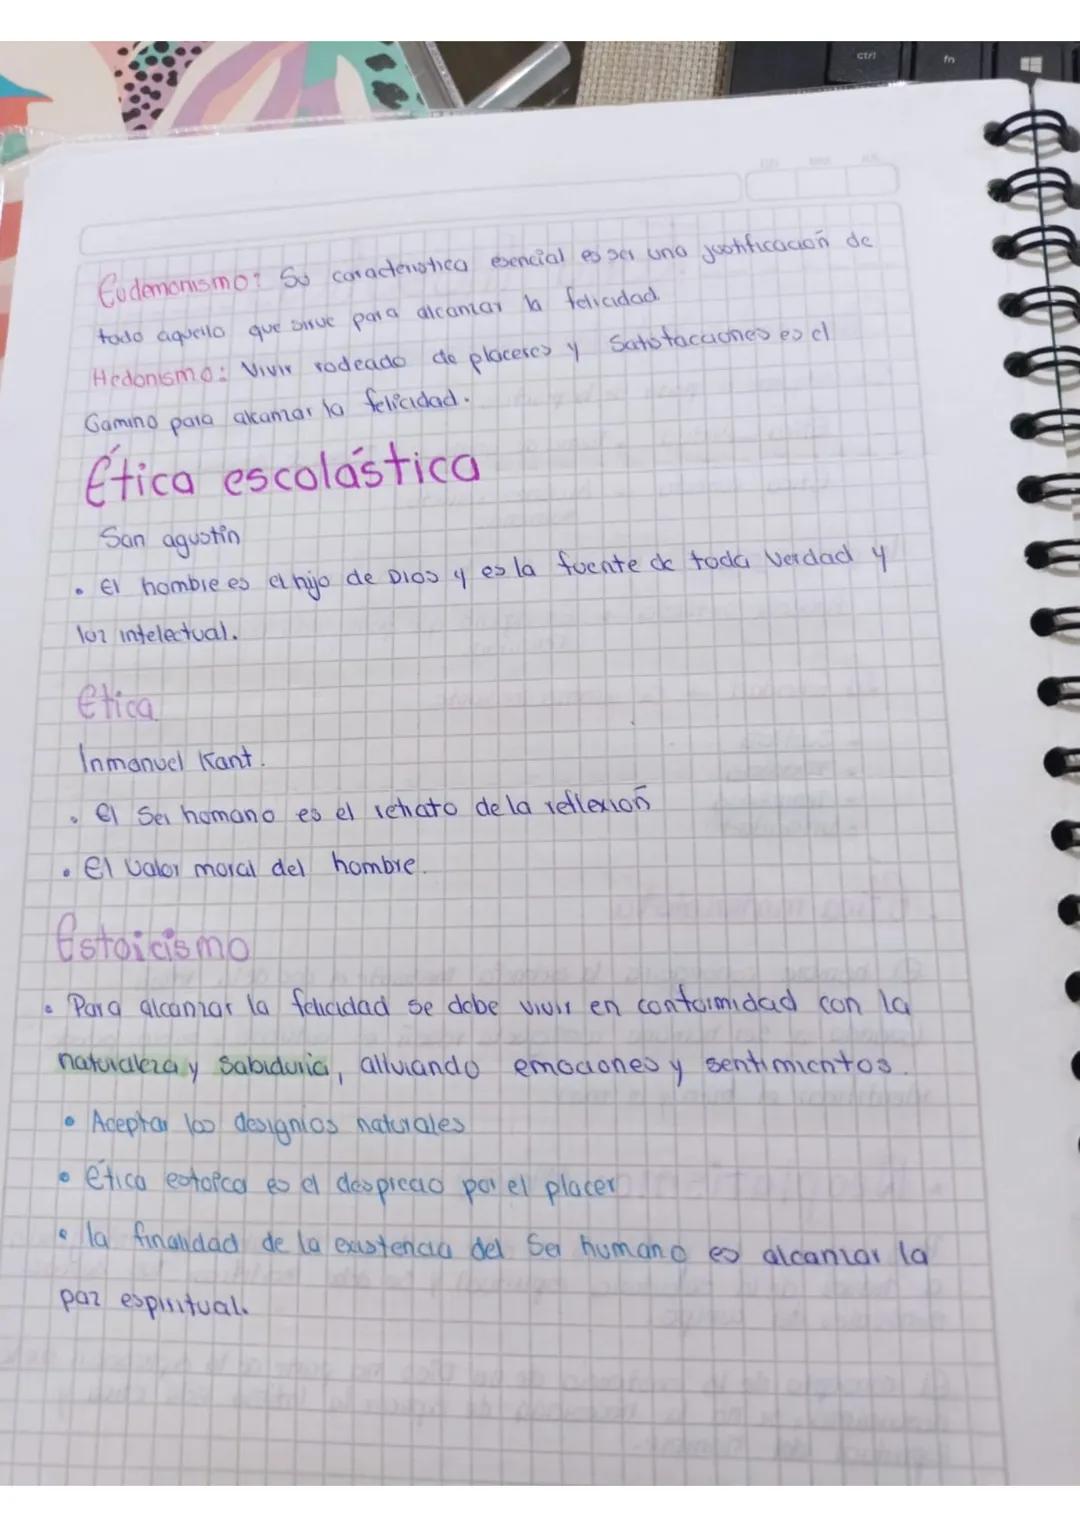 ctrl
fn
Eudemonismo: Su caracteristica esencial es ser una justificación de
todo aquello que sirve para alcanzar la felicidad.
Hedonismo: Vivir rodeado de placeres y Satisfacciones es el
Camino para alcanzar la felicidad.
Ética escolástica
San agustín
• El hombre es el hijo de Dios y es la fuente de toda Verdad y
luz intelectual.
etica
Inmanuel Kant.
• El Ser humano es el retrato de la reflexión
• El Valor moral del hombre.
Estoicismo
• Para alcanzar la felicidad se debe vivir en conformidad con la
naturaleza y Sabiduria, alluiando emociones y sentimientos.
• Aceptar los designios naturales
• Ética estoica es el desprecio por el placer
• la finalidad de la existencia del Ser humano es alcanzar la
paz espiritual.